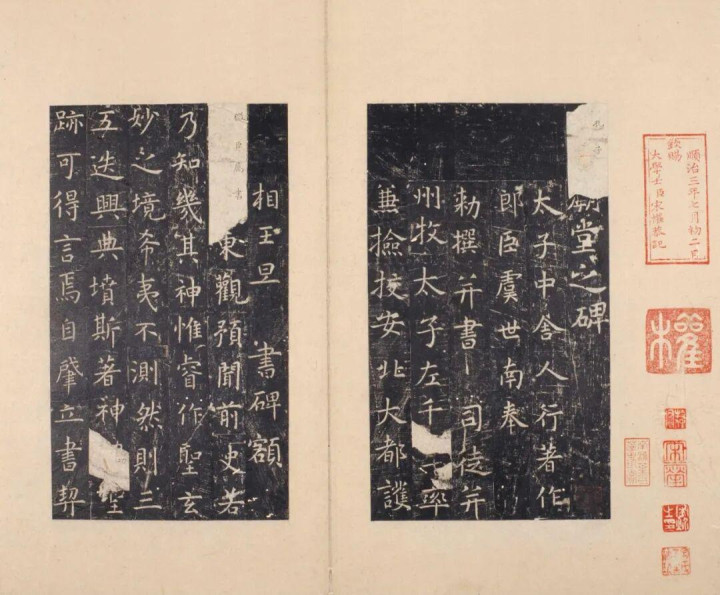 順治三年七月初二日
欽賜
大學士臣宋權恭記
權
孔子
廟堂之碑
太子中舍人行著作
郎臣虞世南奉
勅撰并書 司徒并
州牧太子左千 率
兼撿挍安北大都護
相王旦 書碑額
微臣屬書
東觀預聞前史若
乃知幾其神惟睿作聖玄
妙之境希夷不測然則三
五迭興典墳斯著神 聖
跡可得言焉自肇立書契